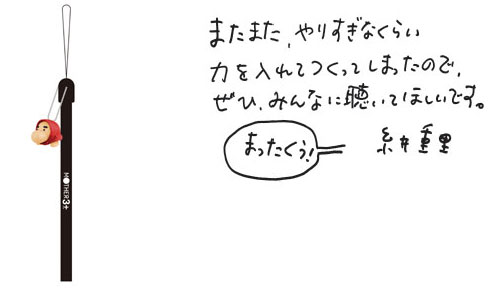 またまた、やりすぎなくらい
力を入れてつくってしまったので、
ぜひ、みんなに聴いてほしいです。
まったくぅ!
糸井重里
MOTHER3+